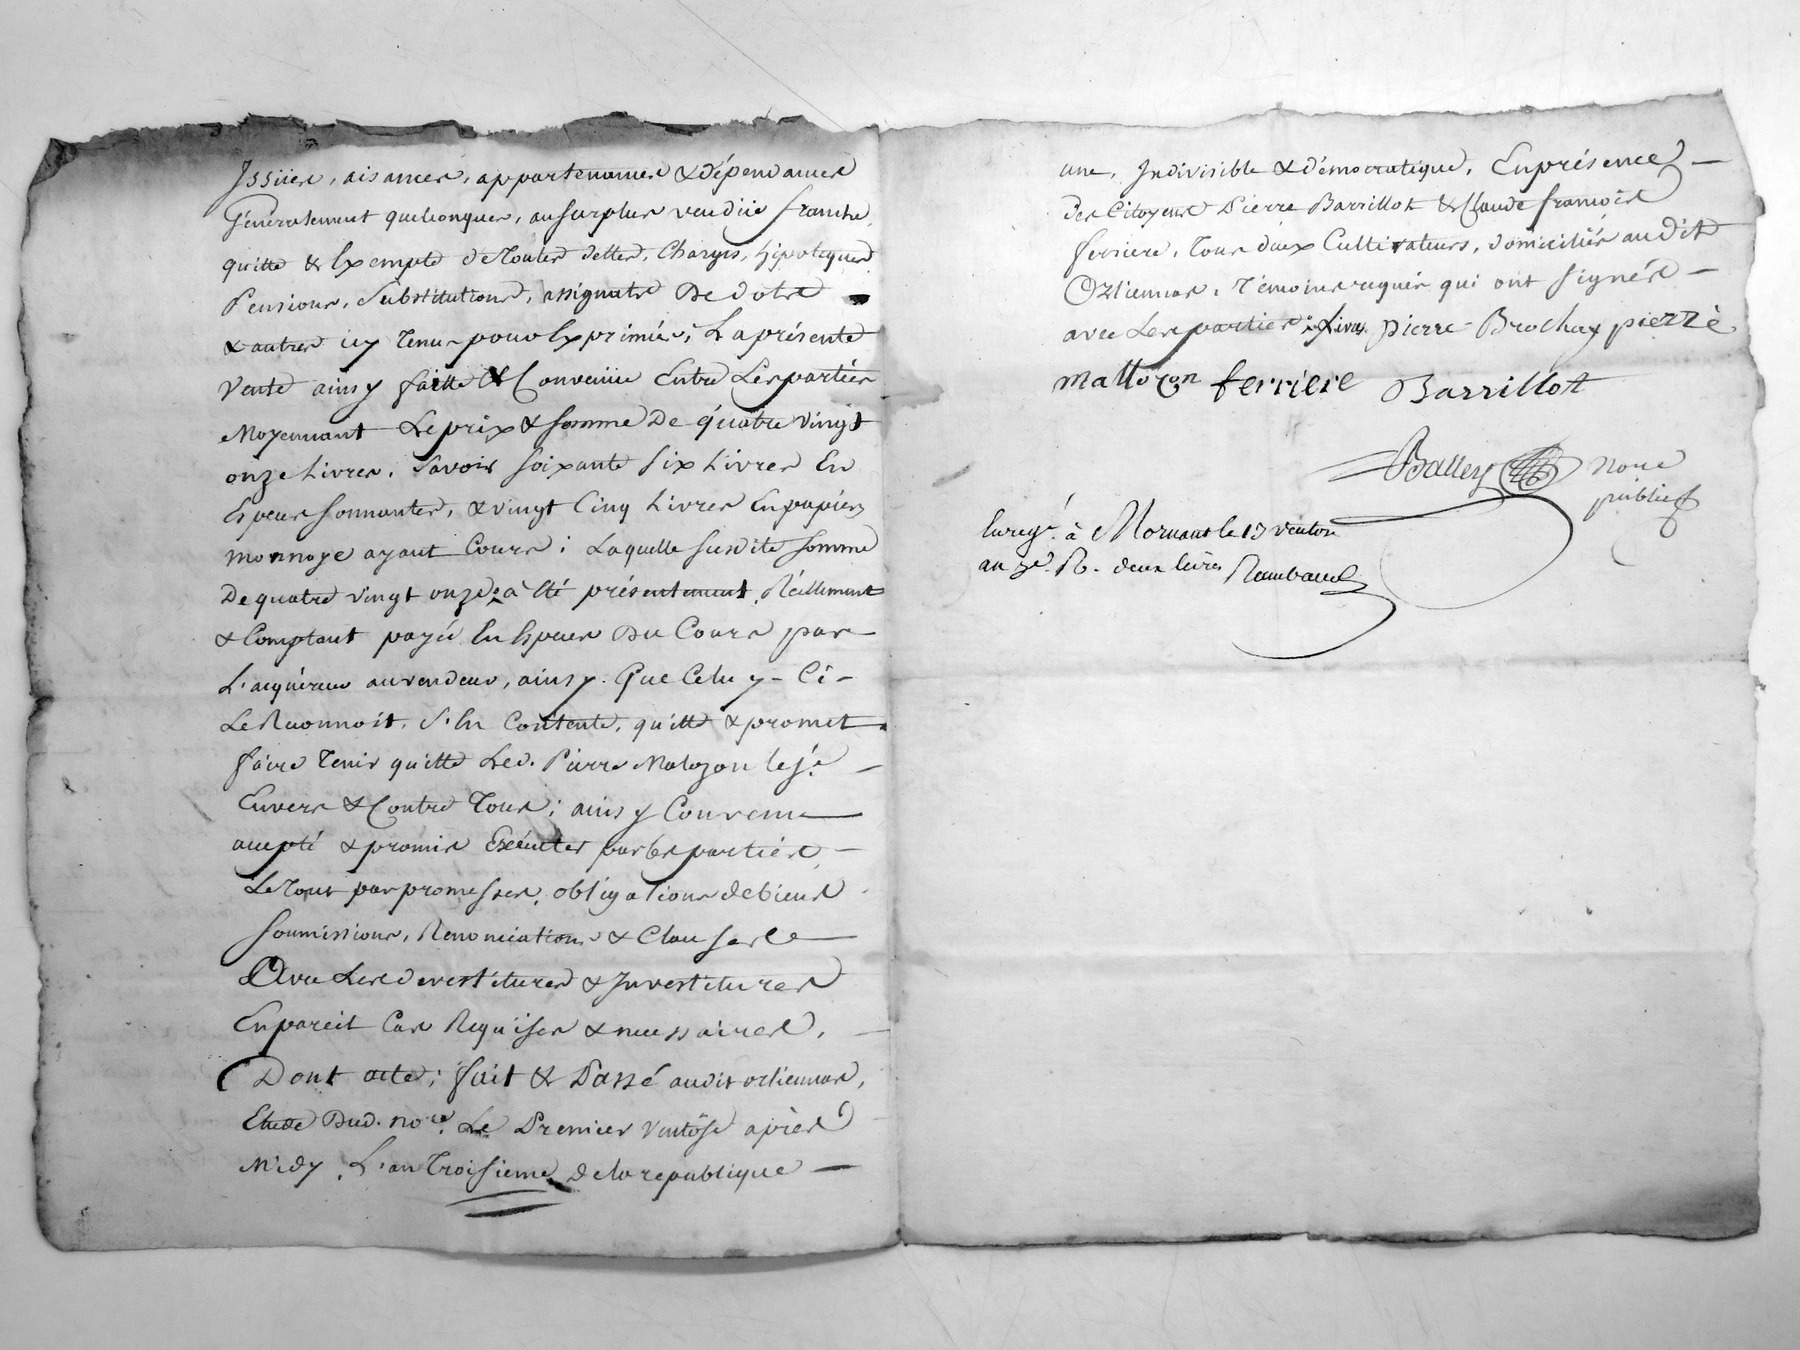 Issües, aisances, appartenances & dépendances
Généralement quelconques, au surplus vendüe franche
quitte & Exempte de Toutes dettes, Charges, hipoteques
Pensions, Substitutions, assignats De dots
& autres icy Tenus pour Exprimés; La présente
Vente ainsy faitte & Convenüe Entre Les parties
Moyennant Le prix & somme De quatre vingt
onze Livres, Savoir soixante six Livres En
Especes sonnantes, & vingt Cinq Livres En papier
monnoye ayant Cours; Laquelle susdite somme
De quatre vingt onze a Eté présentement, Réellement
& Comptant payée En Especes Du Cours par
L'acquéreur au vendeur, ainsy. Que Celuy-Ci-
Le Reconnoit, S'En Contente, quitte & promet
faire Tenir quitte Led. Pierre Malozon le je.
Envers & Contre Tous; ainsy Convenu
accepté & promis Exécuter par les parties,
Le Tout par promesses, obligations de biens
soumissions, Renonciations & Clauses
Avec Les devestitures & Investitures
En pareil Cas Requises & necessaires,
Dont acte; fait & Passé audit orliennas,
Etude Dud. nore. Le Premier Ventôse après
Midy, L'an Troisieme de la republique
une, Indivisible & démocratique, En présence
Des Citoyens Pierre Barrillot & Claude françois
ferriere, Tous deux Cultivateurs, domiciliés audit
Orliennas, Témoins requis qui ont signés
avec Les parties; pierre Brochay pierre
mallozon ferriere Barrillot
Ballery Nore
public
Enregé. à Mornant le 13 ventose
an 3e. R. deux livres Rambaud